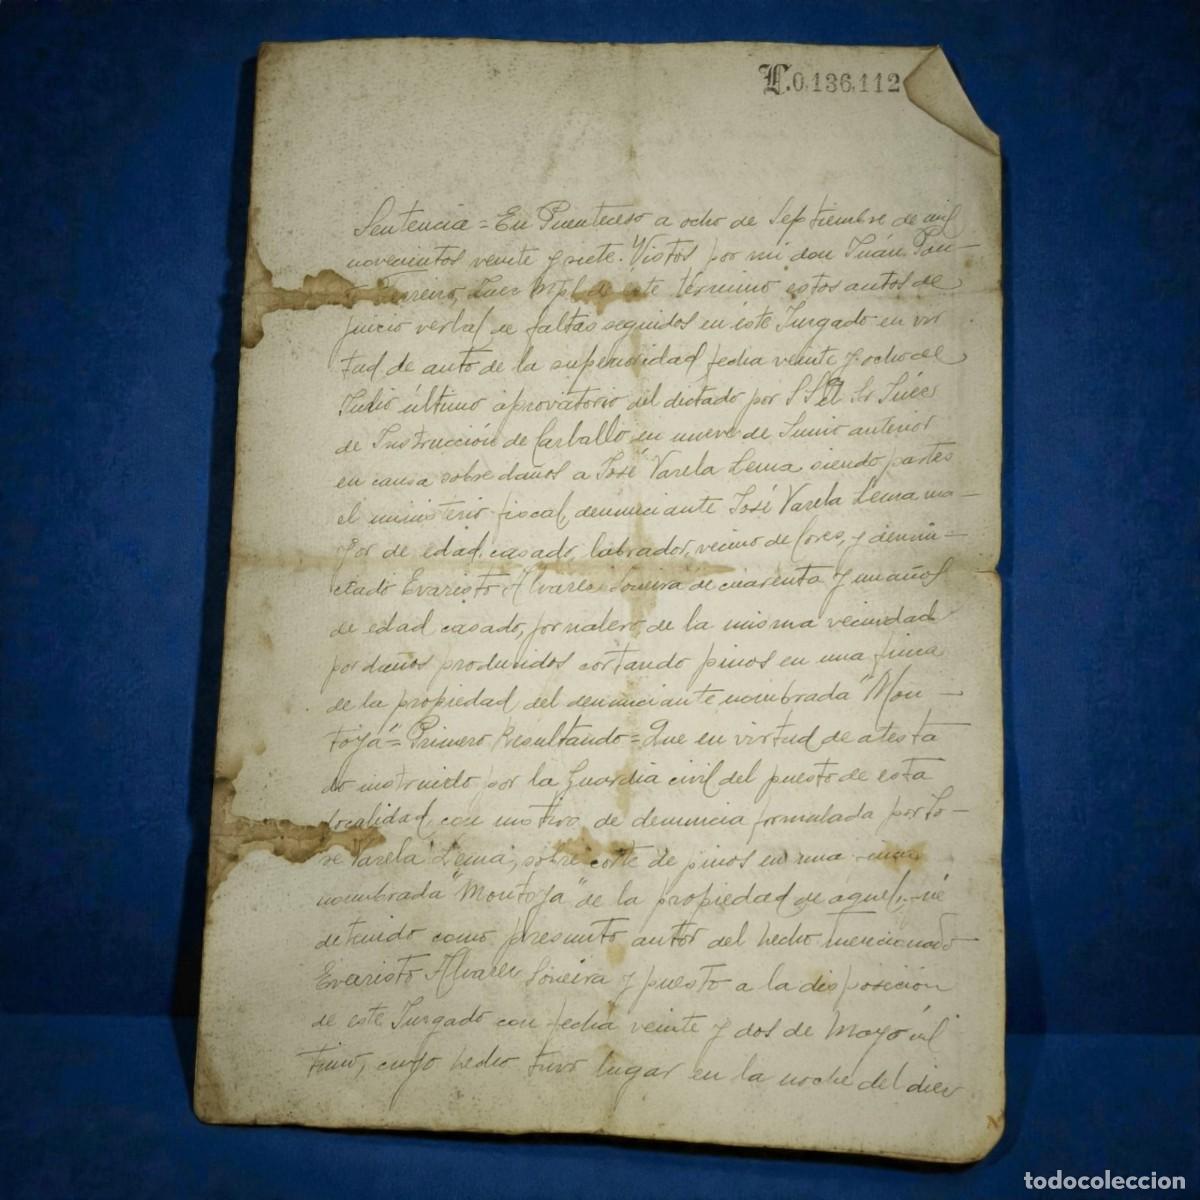 L.0,136,112
Sentencia = En Puenteceso a ocho de Septiembre de mil
novecientos veinte y siete. Vistos por mi don Juán Pan-
Ferreiro, Juez Mpl de este término estos autos de
juicio verbal de faltas seguidos en este Jurgado en vir
tud de auto de la superioridad fecha veinte y ocho de
Julio último aprovatorio del dictado por S S el Sr Juéz
de Instrucción de Carballo en nueve de Junio anterior
en causa sobre daños a José Varela Lema siendo partes
el ministerio fiscal, denunciante José Varela Lema ma-
yor de edad, casado, labrador, vecino de Cores, y denun-
ciado Evaristo Alvarez Soneira de cuarenta y un años
de edad casado, jornalero, de la misma vecindad
por daños producidos cortando pinos en una finca
de la propiedad del denunciante nombrada "Mon-
toya" = Primero Resultando = Que en virtud de atesta
do instruido por la Guardia civil del puesto de esta
localidad con motivo de denuncia formulada por Jo-
se Varela Lema, sobre corte de pinos en una
nombrada "Montoya" de la propiedad de aquel,
detenido como presunto autor del hecho mencionado
Evaristo Alvarez Soneira y puesto a la disposición
de este Jurgado con fecha veinte y dos de Mayo úl
timo, cuyo hecho tuvo lugar en la noche del diez
todocoleccion